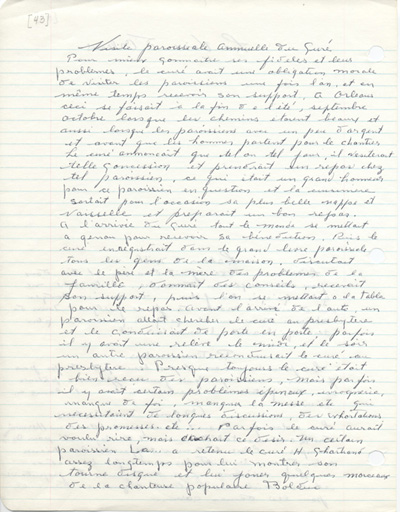 [43]
Visite paroissiale Annuelle du Curé
Pour mieux connaitre ses fidèles et leur
problèmes, le curé avait une obligation morale
de visiter les paroissiens une fois l'an, et en
même temps recevoir son support, A Orleans
ceci se faisait à la fin de l'été, septembre
octobre lorsque les chemins etaient beaux et
aussi lorsque les paroissiens avait un peu d'argent
et avant que les hommes partent pour le chantier
Le curé annonçait que tel ou tel jour, il visiterait
telle concession et prendrait un repas chez
tel paroissien, ce qui était un grand honneur
pour ce paroissien en question et la cuisinière
sortait pour l'occasion sa plus belle nappe et
vaisselle et préparait un bon repas.
A l'arrivée du Curé tout le monde se mettait
a genou pour recevoir sa bénédiction, Puis le
curé enregistrait dans le grand livre paroissiale
tous les gens de la maison, discutait
avec le père et la mère des problèmes de la
famille, donnait des conseils, recevait
son support, puis l'on se mettait a la table
pour le repas. Avant l'arrivé de l'auto, un
paroissien allait chercher le curé au presbytère
et le conduisait de porte en porte, parfois
il y avait une relève le midi, et le soir
un autre paroissien reconduisait le curé au
presbytère. Presque toujours le curé était
bien recu des paroissiens, mais parfois
il y avait certain problèmes épineux, ivrognerie,
manque de foi, manquer la messe etc qui
necessitaient de longues discussions, des exhortations
des promesses etc... Parfois le curé aurait
voulu rire, mais cachait ce désir. Un certain
paroissien a retenu le curé H.
assez longtemps pour lui montrer son
tourne disque et lui jouer quelques morceaux
de la chanteuse populaire Bolduc